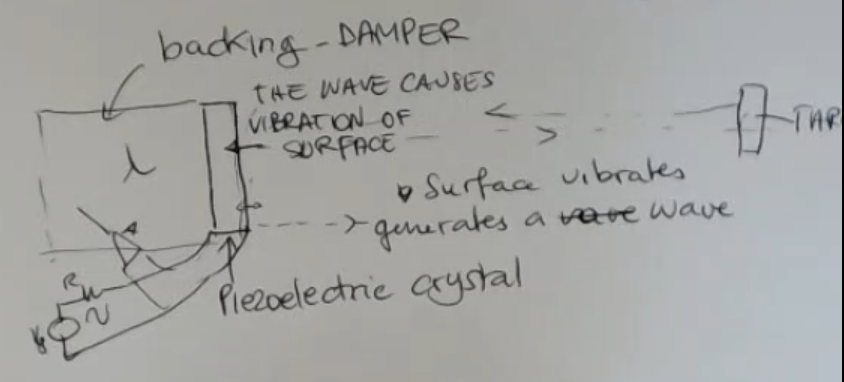 backing - DAMPER
THE WAVE CAUSES
VIBRATION OF
SURFACE
TAR
λ
Surface vibrates
generates a wave wave
Piezoelectric crystal
R